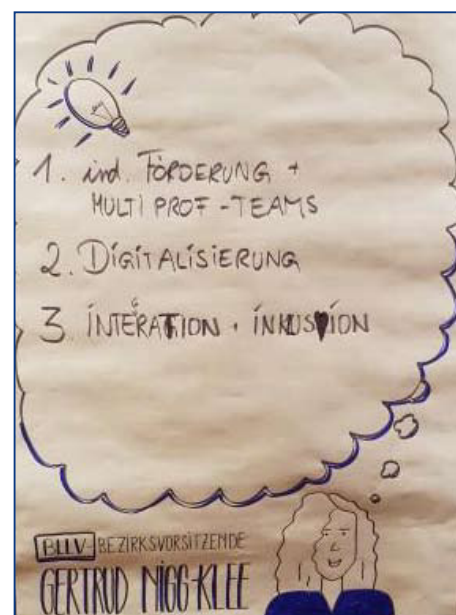 1. ind. FÖRDERUNG +
MULTI PROF-TEAMS
2. DIGITALISIERUNG
3 INTEGRATION + INKLUSION
BLLV BEZIRKSVORSITZENDE
GERTRUD NIGG-KLEE